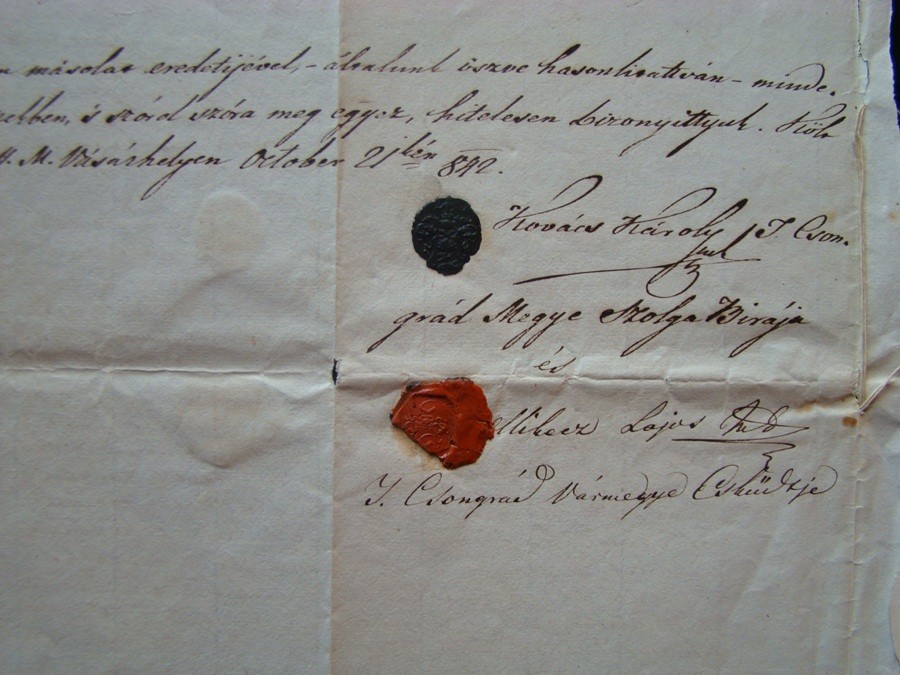 n másolat eredetijével, - általunk öszve hasonlitattván - minde-
nekben, is szórul szóra meg egyez, hitelesen bizonyittyuk. Költ
H. M. Vásárhelyen October 21kén 842.
Kovács Károly T. Cson-
grád Megye Szolga Birája
és
Mikecz Lajos
T. Csongrád Vármegye Esküdtje